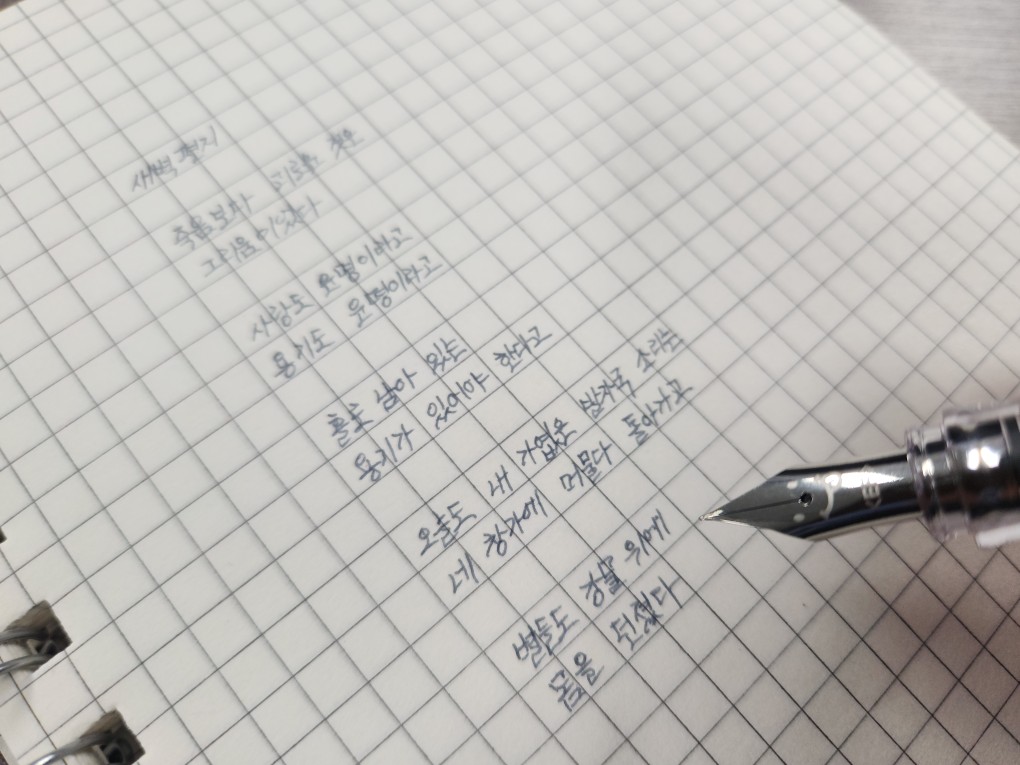 새벽 편지
죽음보다 괴로운 것은
그리움이었다
사랑도 운명이라고
용기도 운명이라고
홀로 남아 있는
용기가 있어야 한다고
오늘도 내 가엾은 발자국 소리는
네 창가에 머물다 돌아가고
별들도 강물 위에
몸을 던졌다